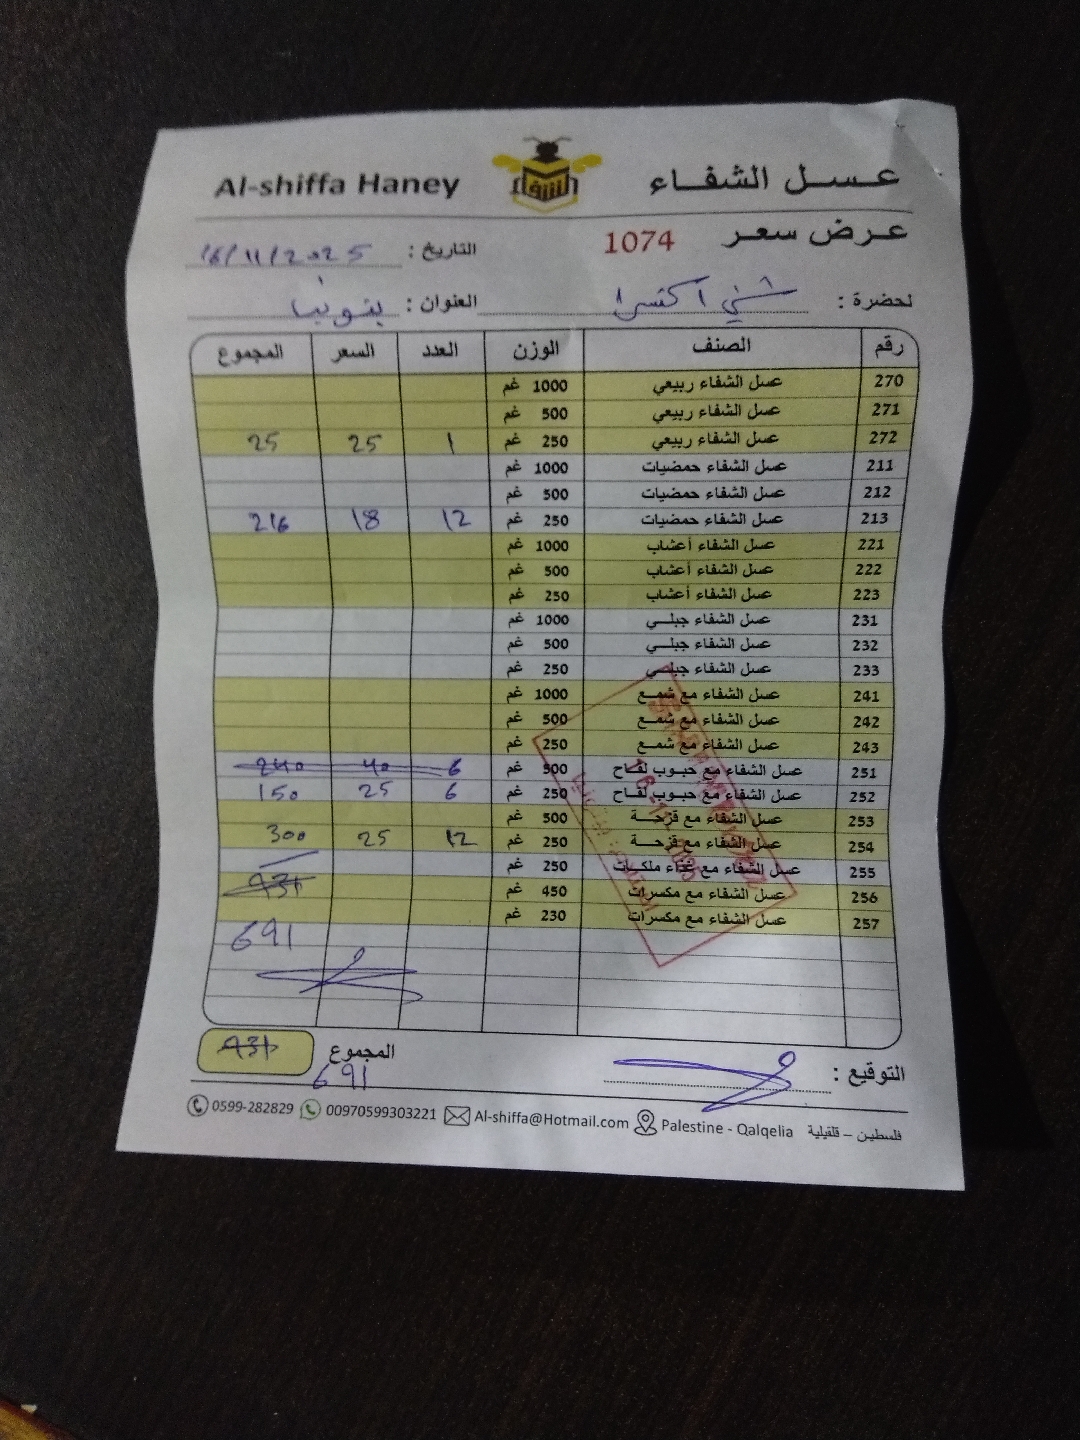 Al-shiffa Haney عسل الشفاء
عرض سعر 1074 التاريخ : 16/11/2025
لحضرة : شني اكسترا العنوان :
رقم الصنف الوزن العدد السعر المجموع
270 عسل الشفاء ربيعي 1000 غم
271 عسل الشفاء ربيعي 500 غم
272 عسل الشفاء ربيعي 250 غم 1 25 25
211 عسل الشفاء حمضيات 1000 غم
212 عسل الشفاء حمضيات 500 غم
213 عسل الشفاء حمضيات 250 غم 12 18 216
221 عسل الشفاء أعشاب 1000 غم
222 عسل الشفاء أعشاب 500 غم
223 عسل الشفاء أعشاب 250 غم
231 عسل الشفاء جبلي 1000 غم
232 عسل الشفاء جبلي 500 غم
233 عسل الشفاء جبلي 250 غم
241 عسل الشفاء مع شمع 1000 غم
242 عسل الشفاء مع شمع 500 غم
243 عسل الشفاء مع شمع 250 غم
251 عسل الشفاء مع حبوب لقاح 500 غم 6 40 240
252 عسل الشفاء مع حبوب لقاح 250 غم 6 25 150
253 عسل الشفاء مع قزحة 500 غم
254 عسل الشفاء مع قزحة 250 غم 12 25 300
255 عسل الشفاء مع غذاء ملكات 250 غم
256 عسل الشفاء مع مكسرات 450 غم 931
257 عسل الشفاء مع مكسرات 230 غم
691
التوقيع : المجموع 931
691
0599-282829 00970599303221 Al-shiffa@Hotmail.com Palestine - Qalqelia فلسطين – قلقيلية